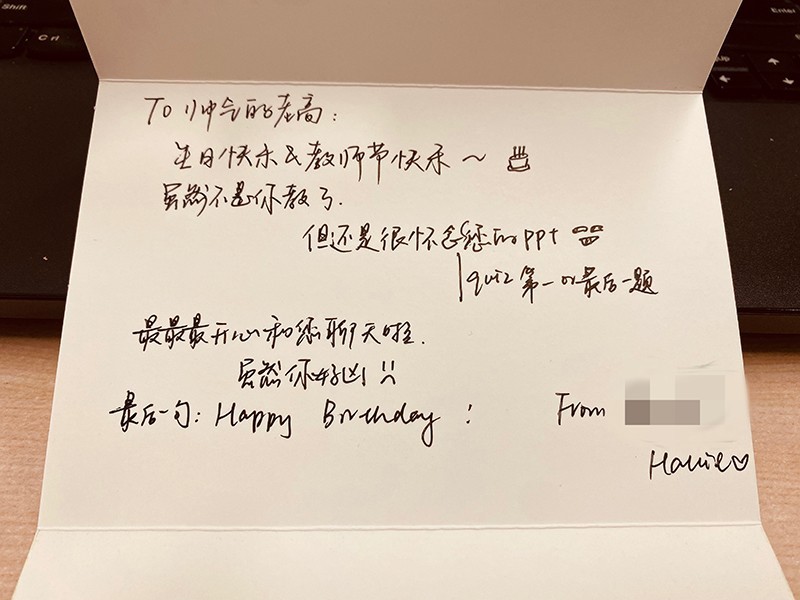 Shift
Ctrl
Enter
To 帅气的老高：
生日快乐&教师节快乐～
虽然不是你教了.
但还是很怀念您的ppt
quiz 第一or最后一题
最最最开心和您聊天啦.
虽然你好凶
最后一句：Happy Birthday！
From